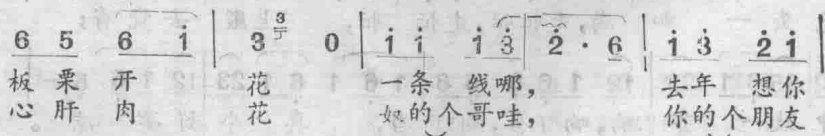 6 5 6 i̇ | 3 0 | i̇ i̇ i̇ 3̇ 2̇ · 6 | i̇ 3̇ 2̇ i̇ |
板 栗 开 花 一 条 线 哪， 去 年 想 你
心 肝 肉 花 奴 的 个 哥 哇， 你 的 个 朋 友